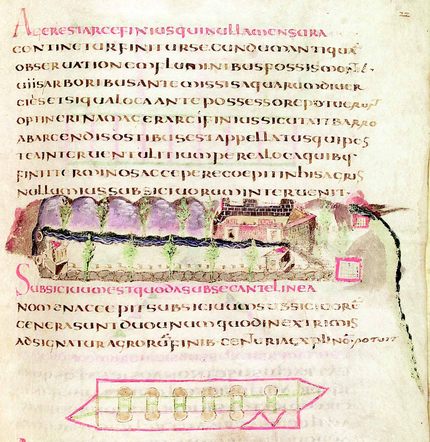 AGERESTARCEFINIUSQUINULLAMENSURA
CONTINETURFINITURSECUNDUMANTIQUĀ
OBSERUATIONEMFLUMINIBUSFOSSISMONTIB·
UIISARBORIBUSANTEMISSISAQUARUMDIUER
GIISETSIQUALOCAANTEPOSSESSOREPOTUERUNT
OPTINERINAMAGERARCIFINIUSSICUTAITBARRO
ABARCENDISOSTIBUSESTAPPELLATUSQUIPOS
TEAINTERUENTULITIUMPEREALOCAQUIBUS
FINITTERMINOSACCEPERECOEPITINHISAGRIS
NULLUMIUSSUBSICIUORUMINTERUENIT·
SUBSICIUUMESTQUODASUBSECANTELINEA
NOMENACCEPITSUBSICIUUMSUBSICIUORŪ
GENERASUNTDUOUNUMQUODINEXTRIMIS
ADSIGNATURAGRORŪFINIB·CENTURIAEXPLINŌPOTUIT